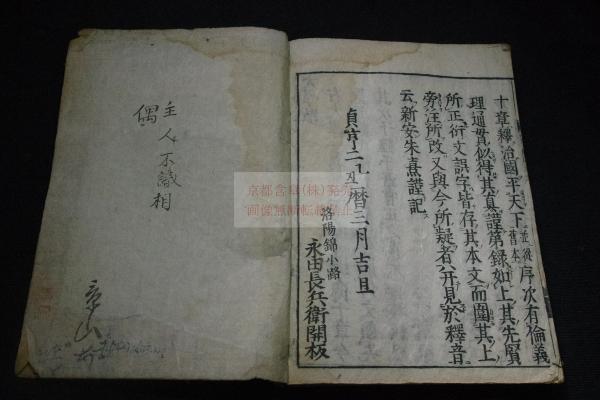 十章釋治國平天下並從舊本序次有倫義
理通貫似得其真謹第錄如上其先賢
所正衍文誤字皆存其本文而圍其上
旁注所改又與今所疑者八并見於釋音
云新安朱熹謹記
貞享二乙丑曆三月吉旦
洛陽錦小路
永田長兵衛開板
主人不識相
偶
京都含章(株)発売
画像無断転載禁止